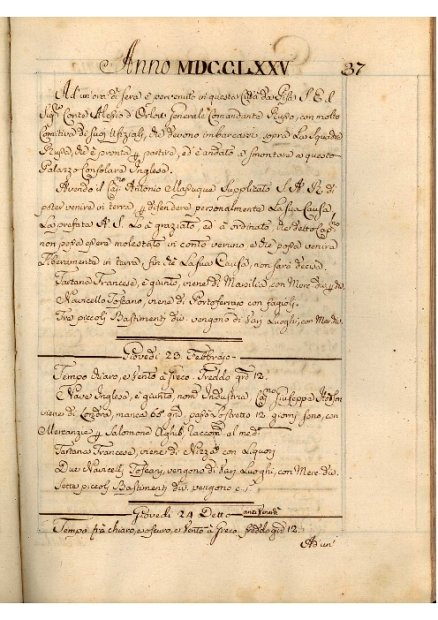 Anno MDCCLXXV 37
Ad un'ora di sera è pervenuto in questa Città da Pisa S. E. il
Sig.r Conte Alessio d'Orlow Generale Comandante Russo, con molto
Comitiva di suoi Ufiziali, che devono imbarcarsi sopra la Squadra
Russa, che è pronta p partire, ed è andato a smontare a questo
Palazzo Consolare Inglese.
Avendo il Cap.no Antonio Supplicato S. A. R. di
poter venire in terra p difendere personalmente la sua Causa,
La prefata A. S. Lo à graziato, ed à ordinato che detto Cap.no
non possa essere molestato in conto veruno, e che possa venire
liberamente in terra, fin che la sua Causa, non sarà decisa.
Tartana Francese, è giunto, viene di Marsilia, con Merc. div.e
Navicello Toscano, viene di Portoferraio con fagioli.
Tre piccoli Bastimenti div. vengono di varj Luoghi, con Mer. div.
Giovedì 23 Febbraio
Tempo chiaro, e Vento à Greco. Freddo grd 12.
Nave Inglese, è giunto, nom. Industria Cap.no Giuseppe
viene di Londra, manca 60 grd, passò lo stretto 12 giorni sono, con
Mercanzie p Salomone Aghib, raccom. al med.o
Tartana Francese, viene di Nizza con Liquori
Due Navicelli Toscani, vengono di varj Luoghi, con Merc. div.
Sette piccoli Bastimenti div. vengono c. s.
Giovedì 24 Detto anzi Venerdì
Tempo frà chiaro, e oscuro, e Vento à Greco freddo grd 12
Ad un'